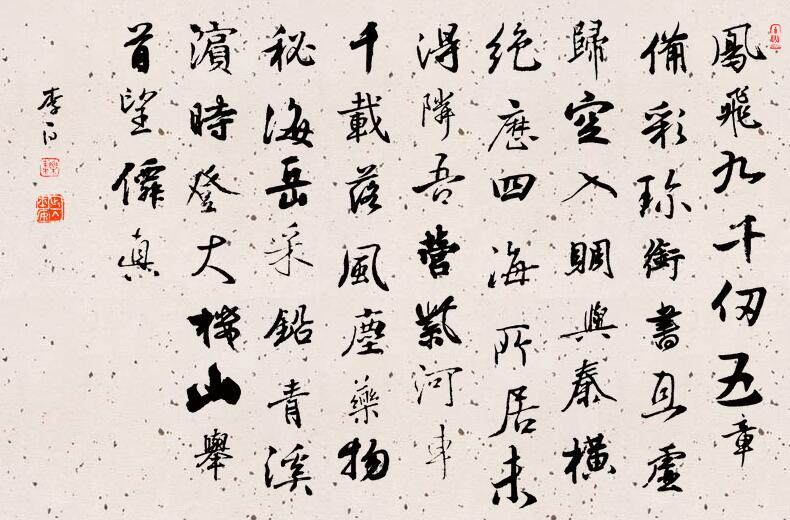 鳳飛九千仞五章
備彩珍銜書且虛
歸空入賙與秦橫
絕歷四海所居未
得隣吾營紫河車
千載落風塵藥物
秘海岳采鉛青溪
濱時登大樓山舉
首望僊真
李白